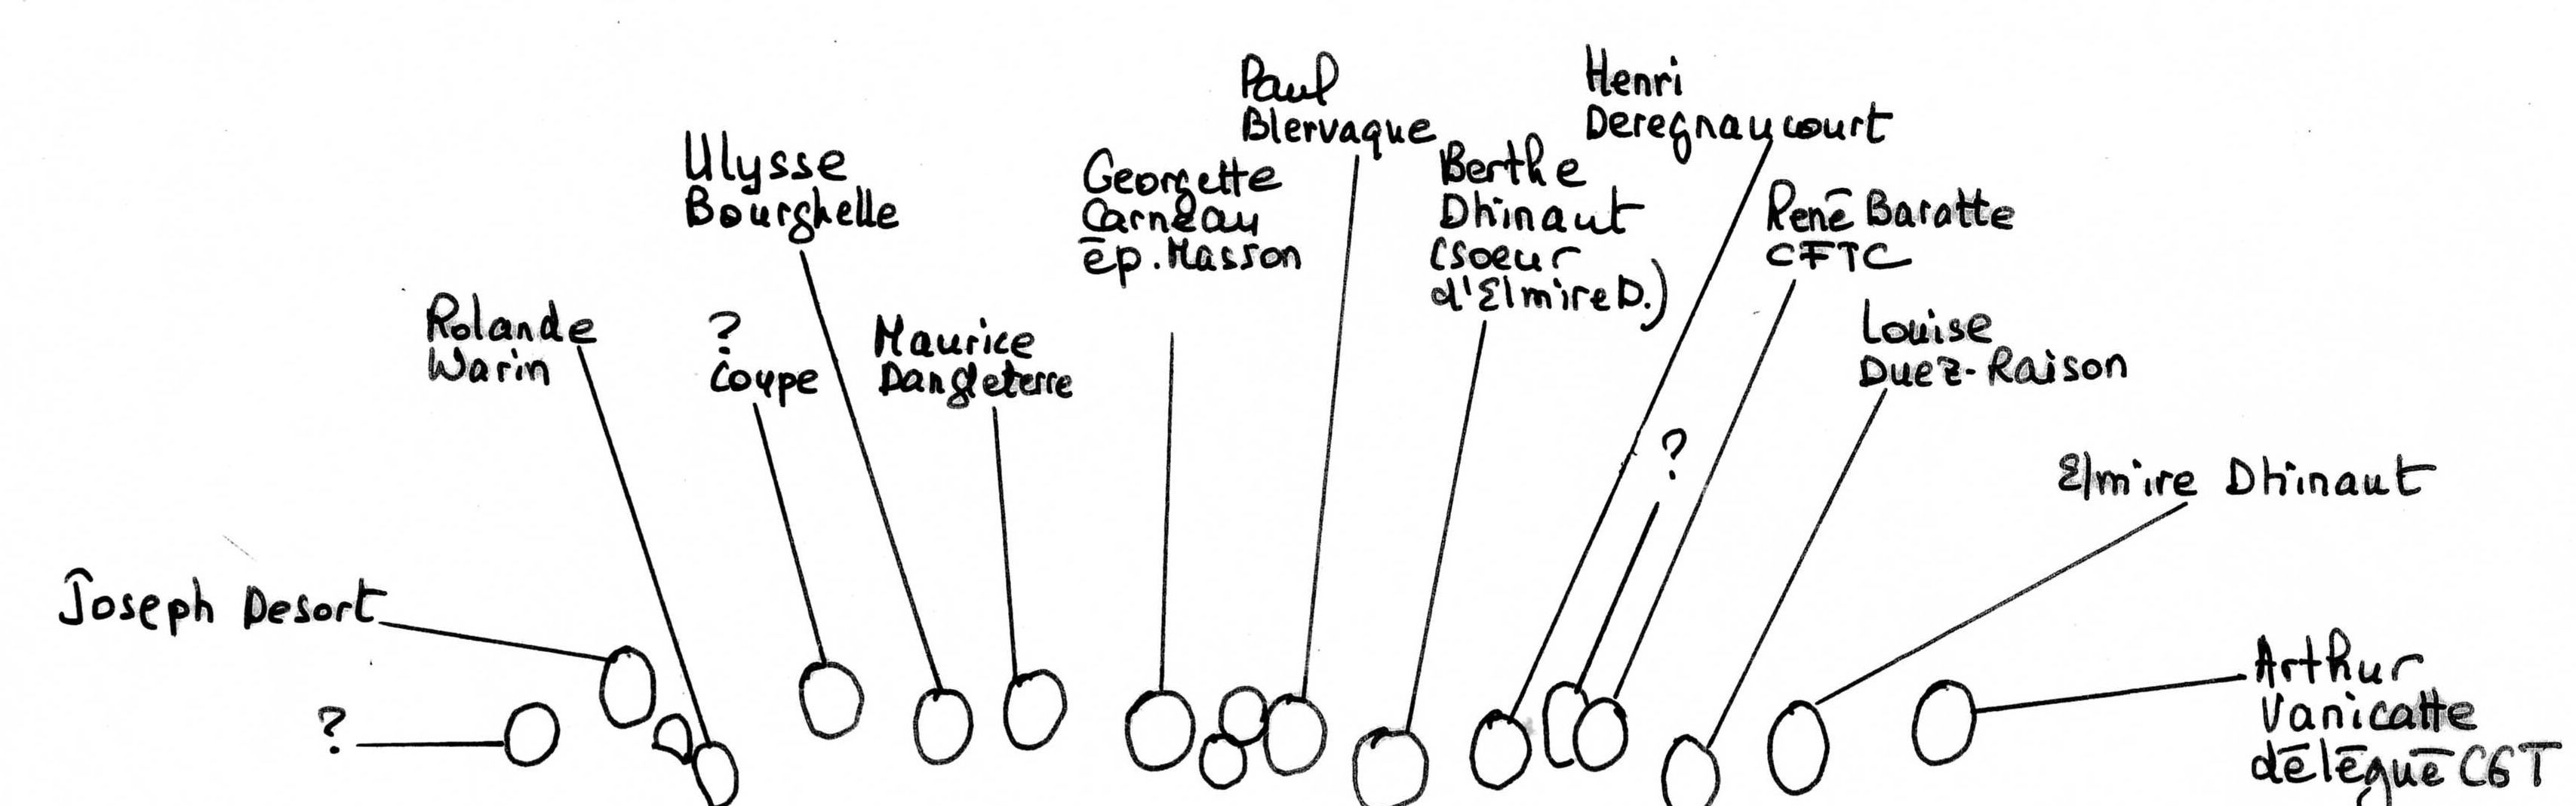 Paul
Blervaque
Henri
Deregnaucourt
Ulysse
Bourghelle
Georgette
Carneau
ép. Masson
Berthe
Dhinaut
(soeur
d'Elmire D.)
René Baratte
CFTC
Rolande
Warin
?
Coupe
Maurice
Dangleterre
Louise
Duez-Raison
?
Elmire Dhinaut
Joseph Desort
?
Arthur
Vanicatte
délégué CGT